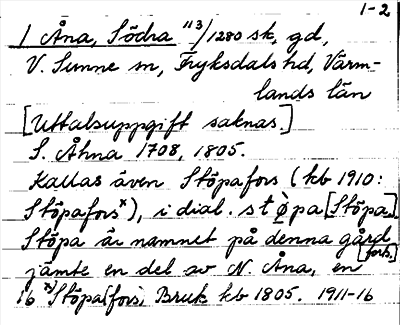 1-2
1 Åna, Södra 113/1280 sk, gd,
V. Sunne sn, Fryksdals hd, Värm-
lands län
[Uttalsuppgift saknas.]
S. Åhna 1708, 1805.
Kallas även Stöpafors (kb 1910:
Stöpaforsˣ), i dial. stø̀pa [Stöpa.]
Stöpa är namnet på denna gård
jämte en del av N. Åna, en [forts.]
16 ˣ⁾Stöpa(fors) Bruk kb 1805. 1911-16